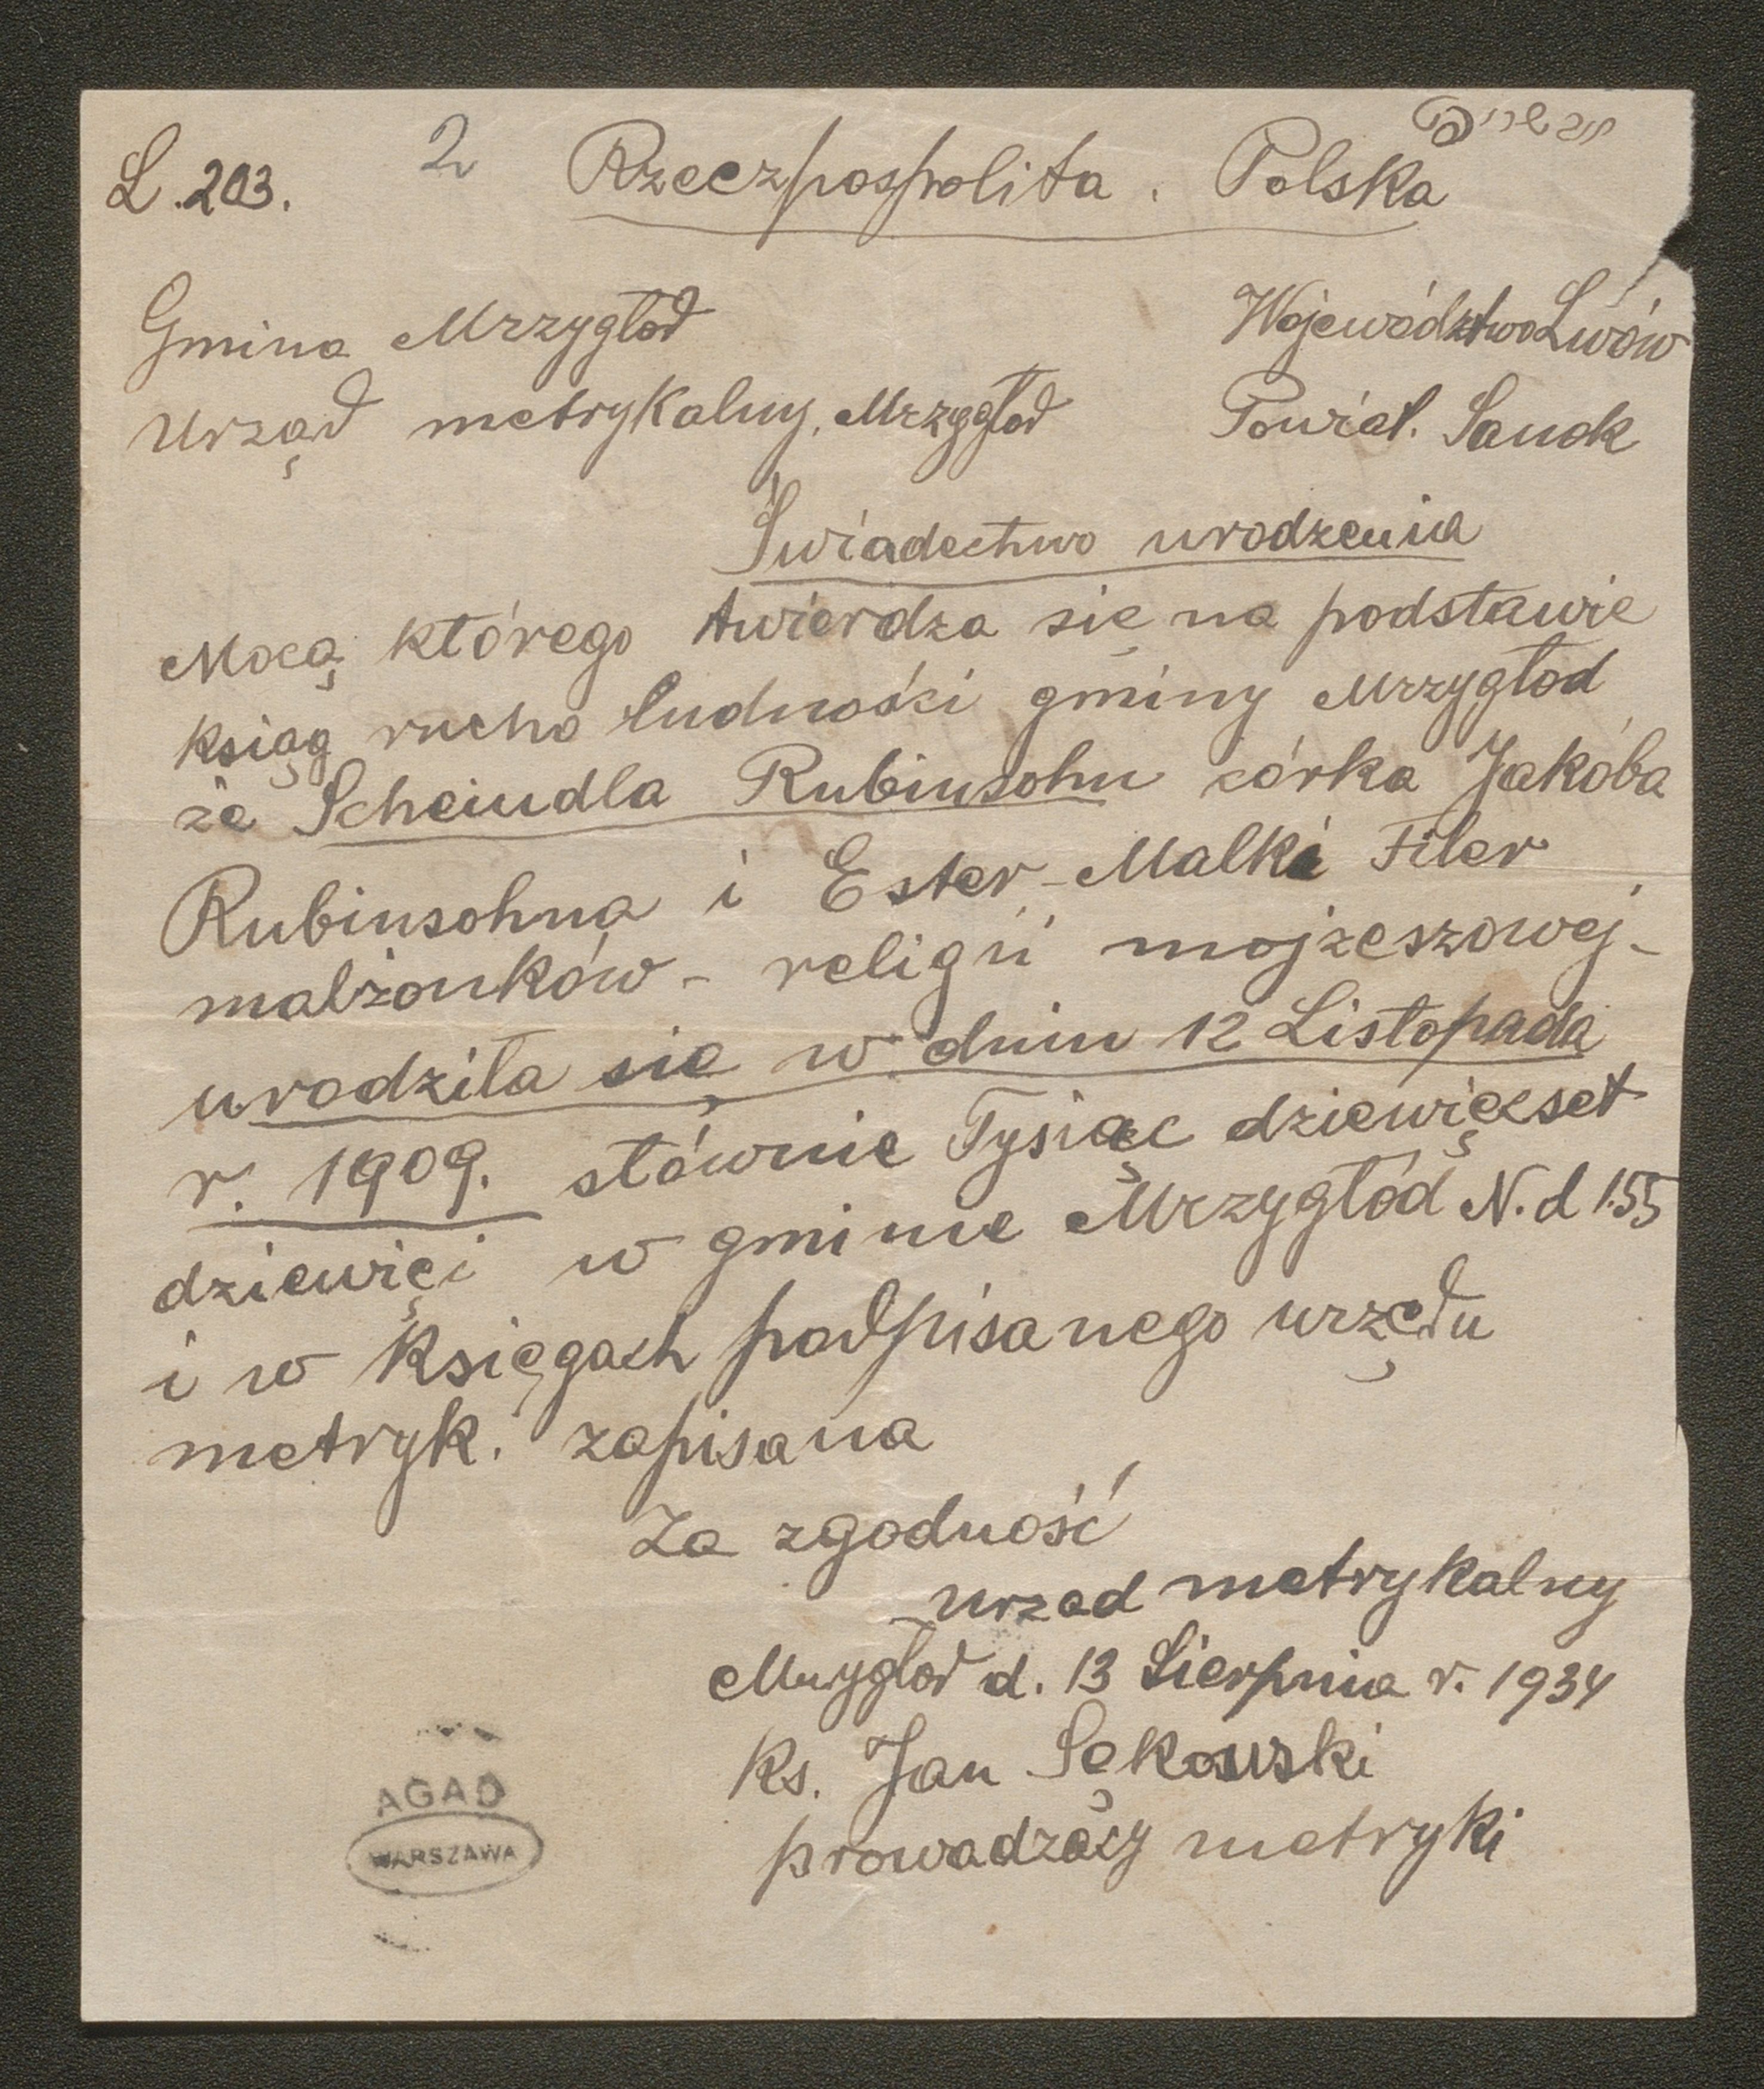 L. 203. 2 Rzeczpospolita . Polska
Gmina Mrzygłod Województwo Lwów
Urząd metrykalny. Mrzygłod Powiat. Sanok
Świadectwo urodzenia
Mocą którego twierdza się na podstawie
ksiąg rucho ludności gminy Mrzygłod
że Scheindla Rubinsohn córka Jakóba
Rubinsohna i Ester-Malki Filer
małżonków - religii mojżeszowej -
urodziła się w dniu 12 Listopada
r. 1909. słównie Tysiąc dziewięcset
dziewięci w gminie Mrzygłód N. d 155
i w księgach podpisanego urzędu
metryk. zapisana
Za zgodność
urzad metrykalny
Mrzygłod d. 13 Sierpnia r. 1934
Ks. Jan Sękowski
prowadzący metryki
AGAD
WARSZAWA